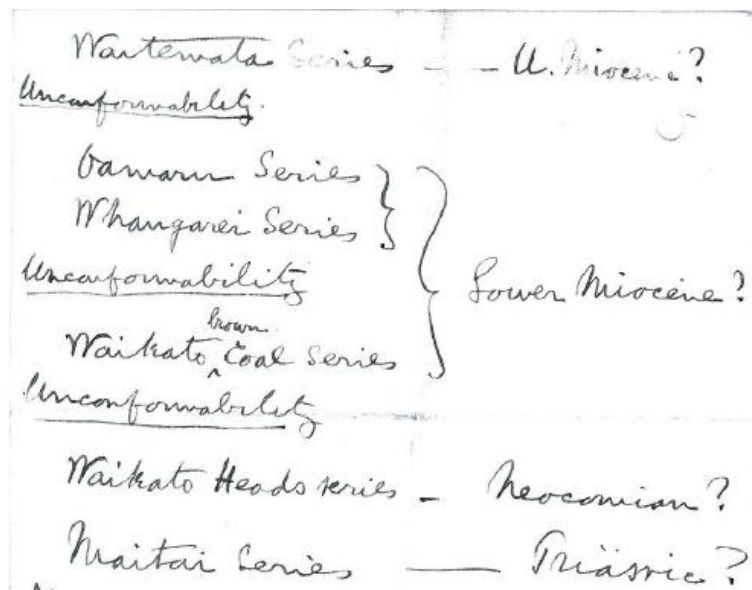 Waitemata Series — — U. Miocene?
Unconformability.
Oamaru Series
Whangarei Series
Unconformability
Lower Miocene?
brown
Waikato ^ Coal Series
Unconformability
Waikato Heads series – Neocomian?
Maitai Series — Triässic?